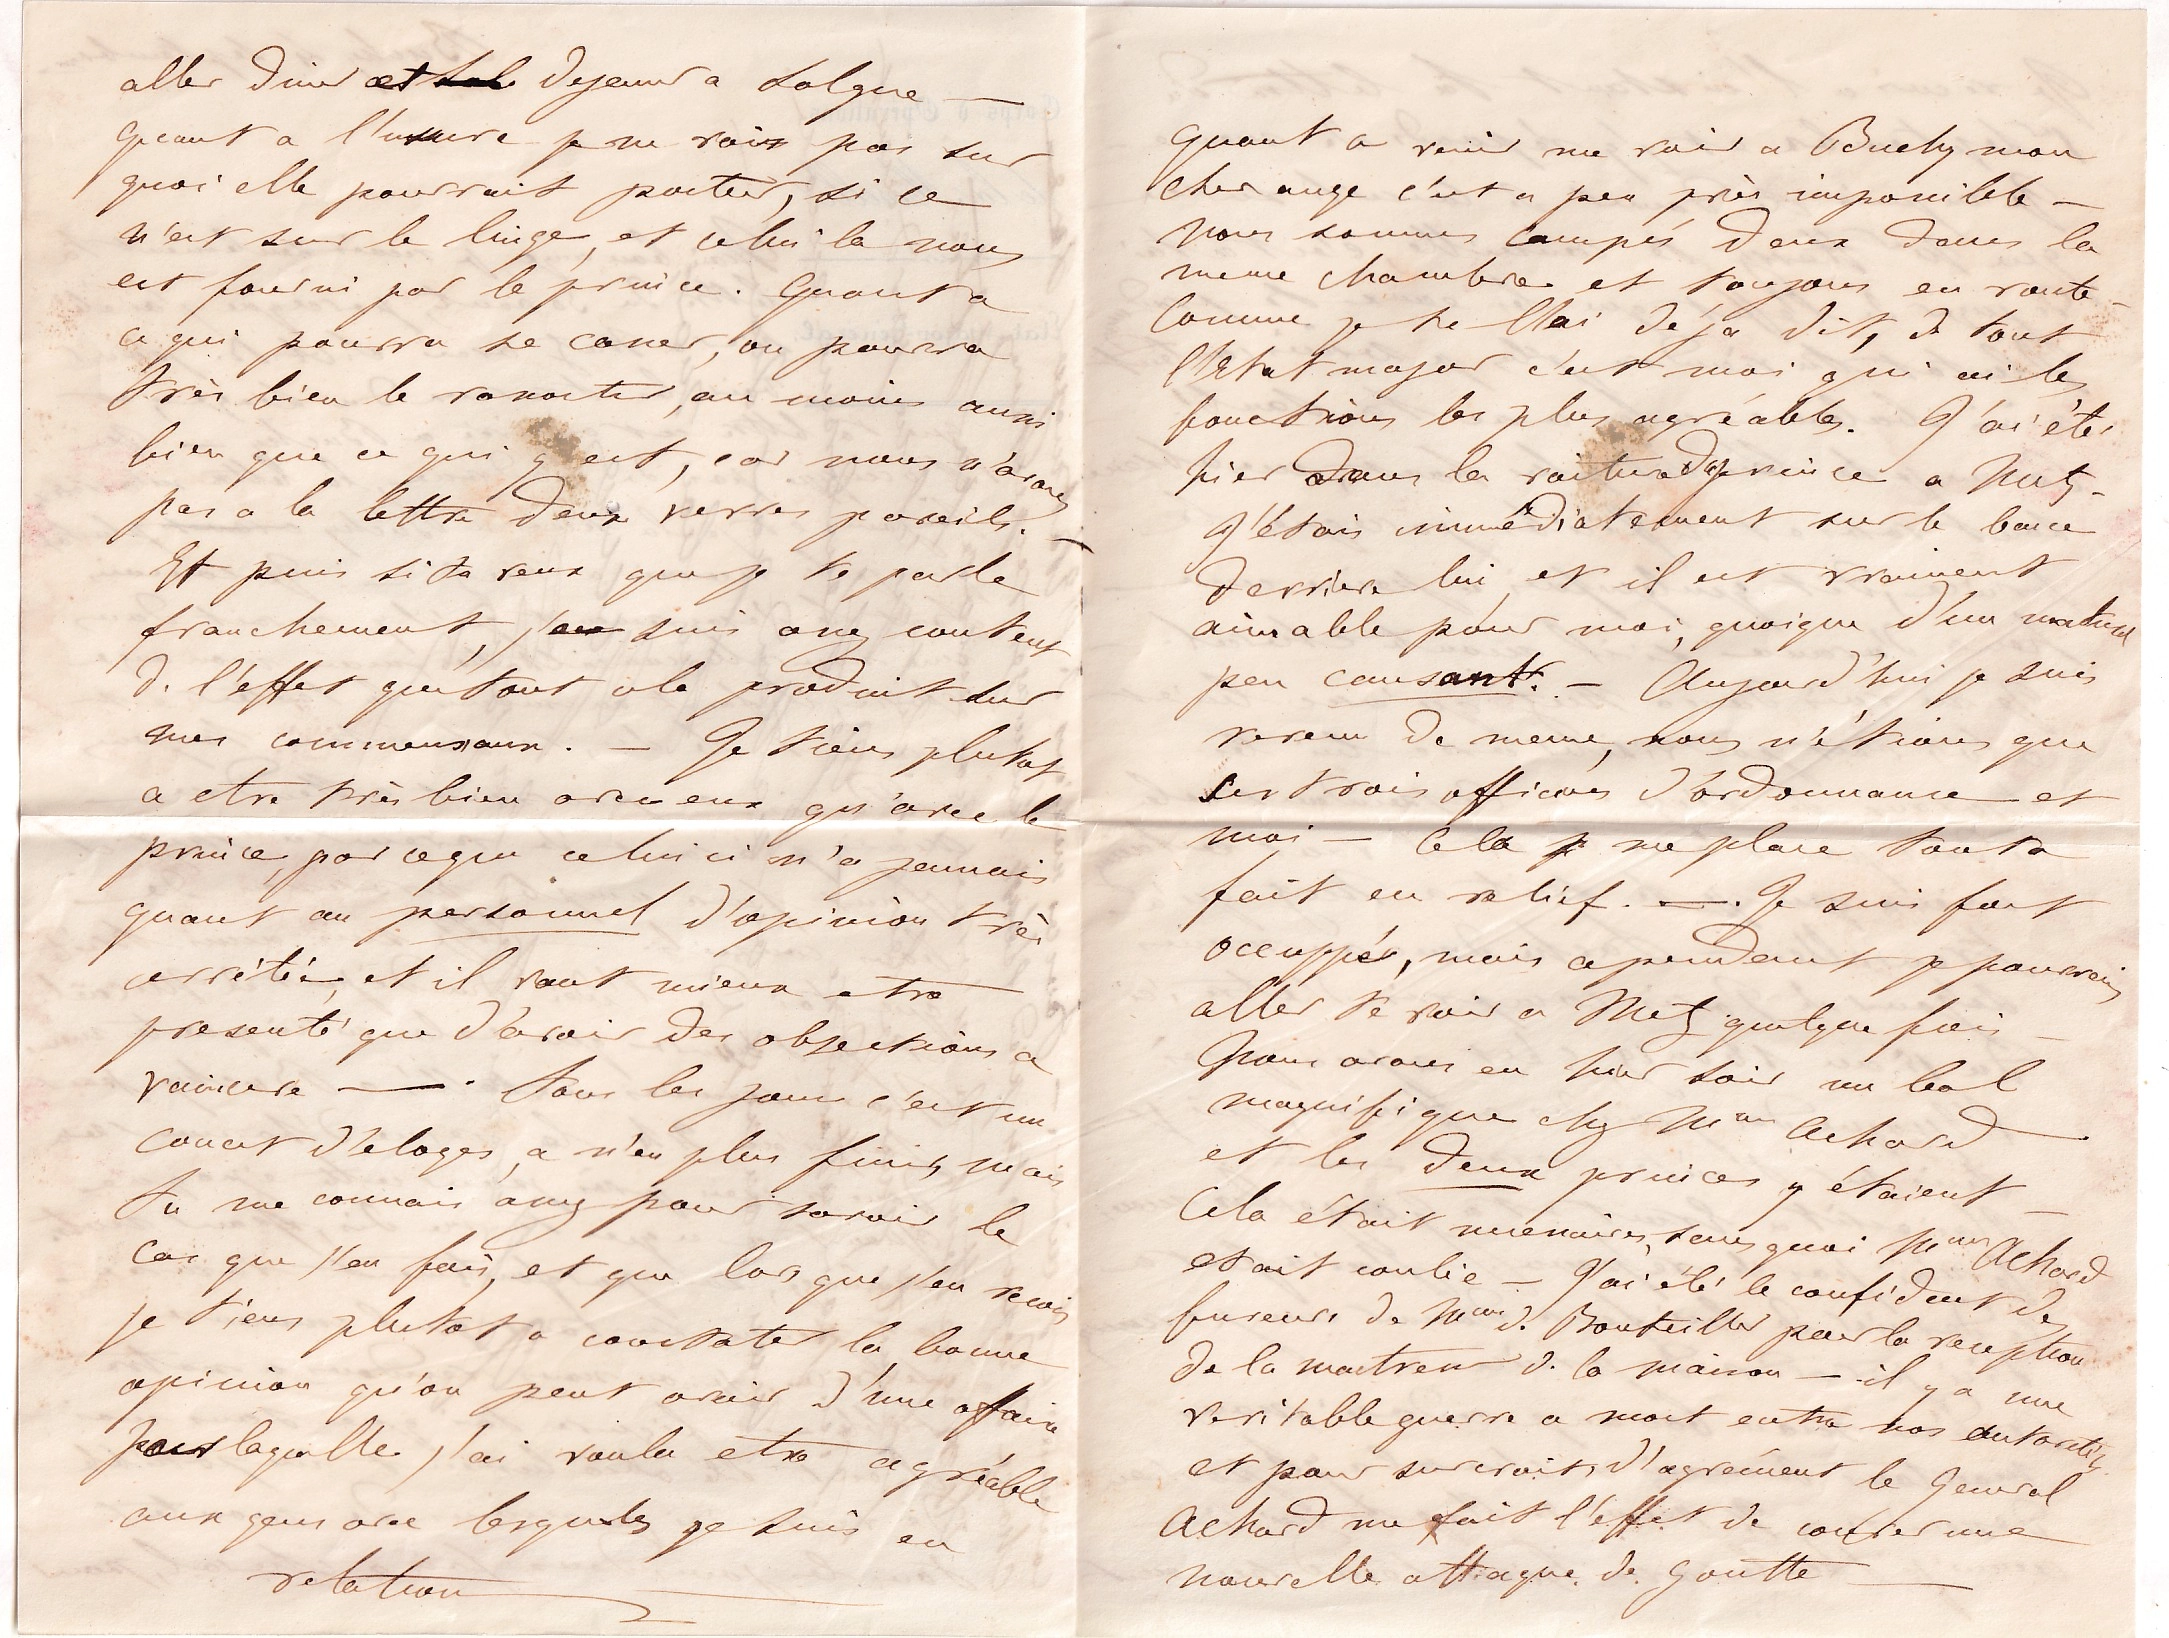 aller diner et dejeuner a Solgne —
Quant a l'usure je ne vois pas sur
quoi elle pourrait porter, si ce
n'est sur le linge, et celui la nous
est fourni par le prince. Quant a
ce qui pourra se casser, on pourra
très bien le rassortir, au moins aussi
bien que ce qui y est, car nous n'avons
pas a la lettre deux verres pareils. —
Et puis si tu veux que je te parle
franchement, je suis assez content
de l'effet que tout cela produit sur
mes commensaux. — Je tiens plutot
a etre très bien avec eux qu'avec le
prince, par ce que celui ci n'a jamais
quant au personnel d'opinion très
arrêtée, et il vaut mieux etre
presenté que d'avoir des objections a
vaincre —. Tous les jours c'est un
concert d'eloges, a n'en plus finir, mais
tu me connais assez pour savoir le
cas que j'en fais, et que lors que j'en reçois
je tiens plutot a constater la bonne
opinion qu'on peut avoir d'une affaire
pour laquelle j'ai voulu etre agréable
aux gens avec lesquels je suis en
relation
Quant a venir me voir a Buchy mon
cher ange c'est a peu près impossible —
Nous sommes campés deux dans la
meme chambre et toujours en route —
Comme je te l'ai déja dit, de tout
l'Etat major c'est moi qui ai les
fonctions les plus agréables. J'ai été
hier dans la voiture du prince a Metz —
J'étais immédiatement sur le banc
derriere lui, et il est vraiment
aimable pour moi, quoique d'un naturel
peu causant. — Aujourd'hui je suis
revenu de meme, nous n'étions que
ses trois officiers d'ordonnance et
moi — Cela me place tout a
fait en relief. —. Je suis fort
occuppé, mais cependant je pourrai
aller te voir a Metz quelque fois —
Nous avons eu hier soir un bal
magnifique chez Mme Achard —
et les deux princes y étaient —
Cela était nécessaire, sans quoi Mme Achard
etait coulée — J'ai été le confident des
fureurs de Mme de Bouteiller pour la reception
de la maitresse de la maison — il y a une
veritable guerre a mort entre nos autorités
et pour surcroit d'agrément le General
Achard me fait l'effet de couver une
nouvelle attaque de goutte —